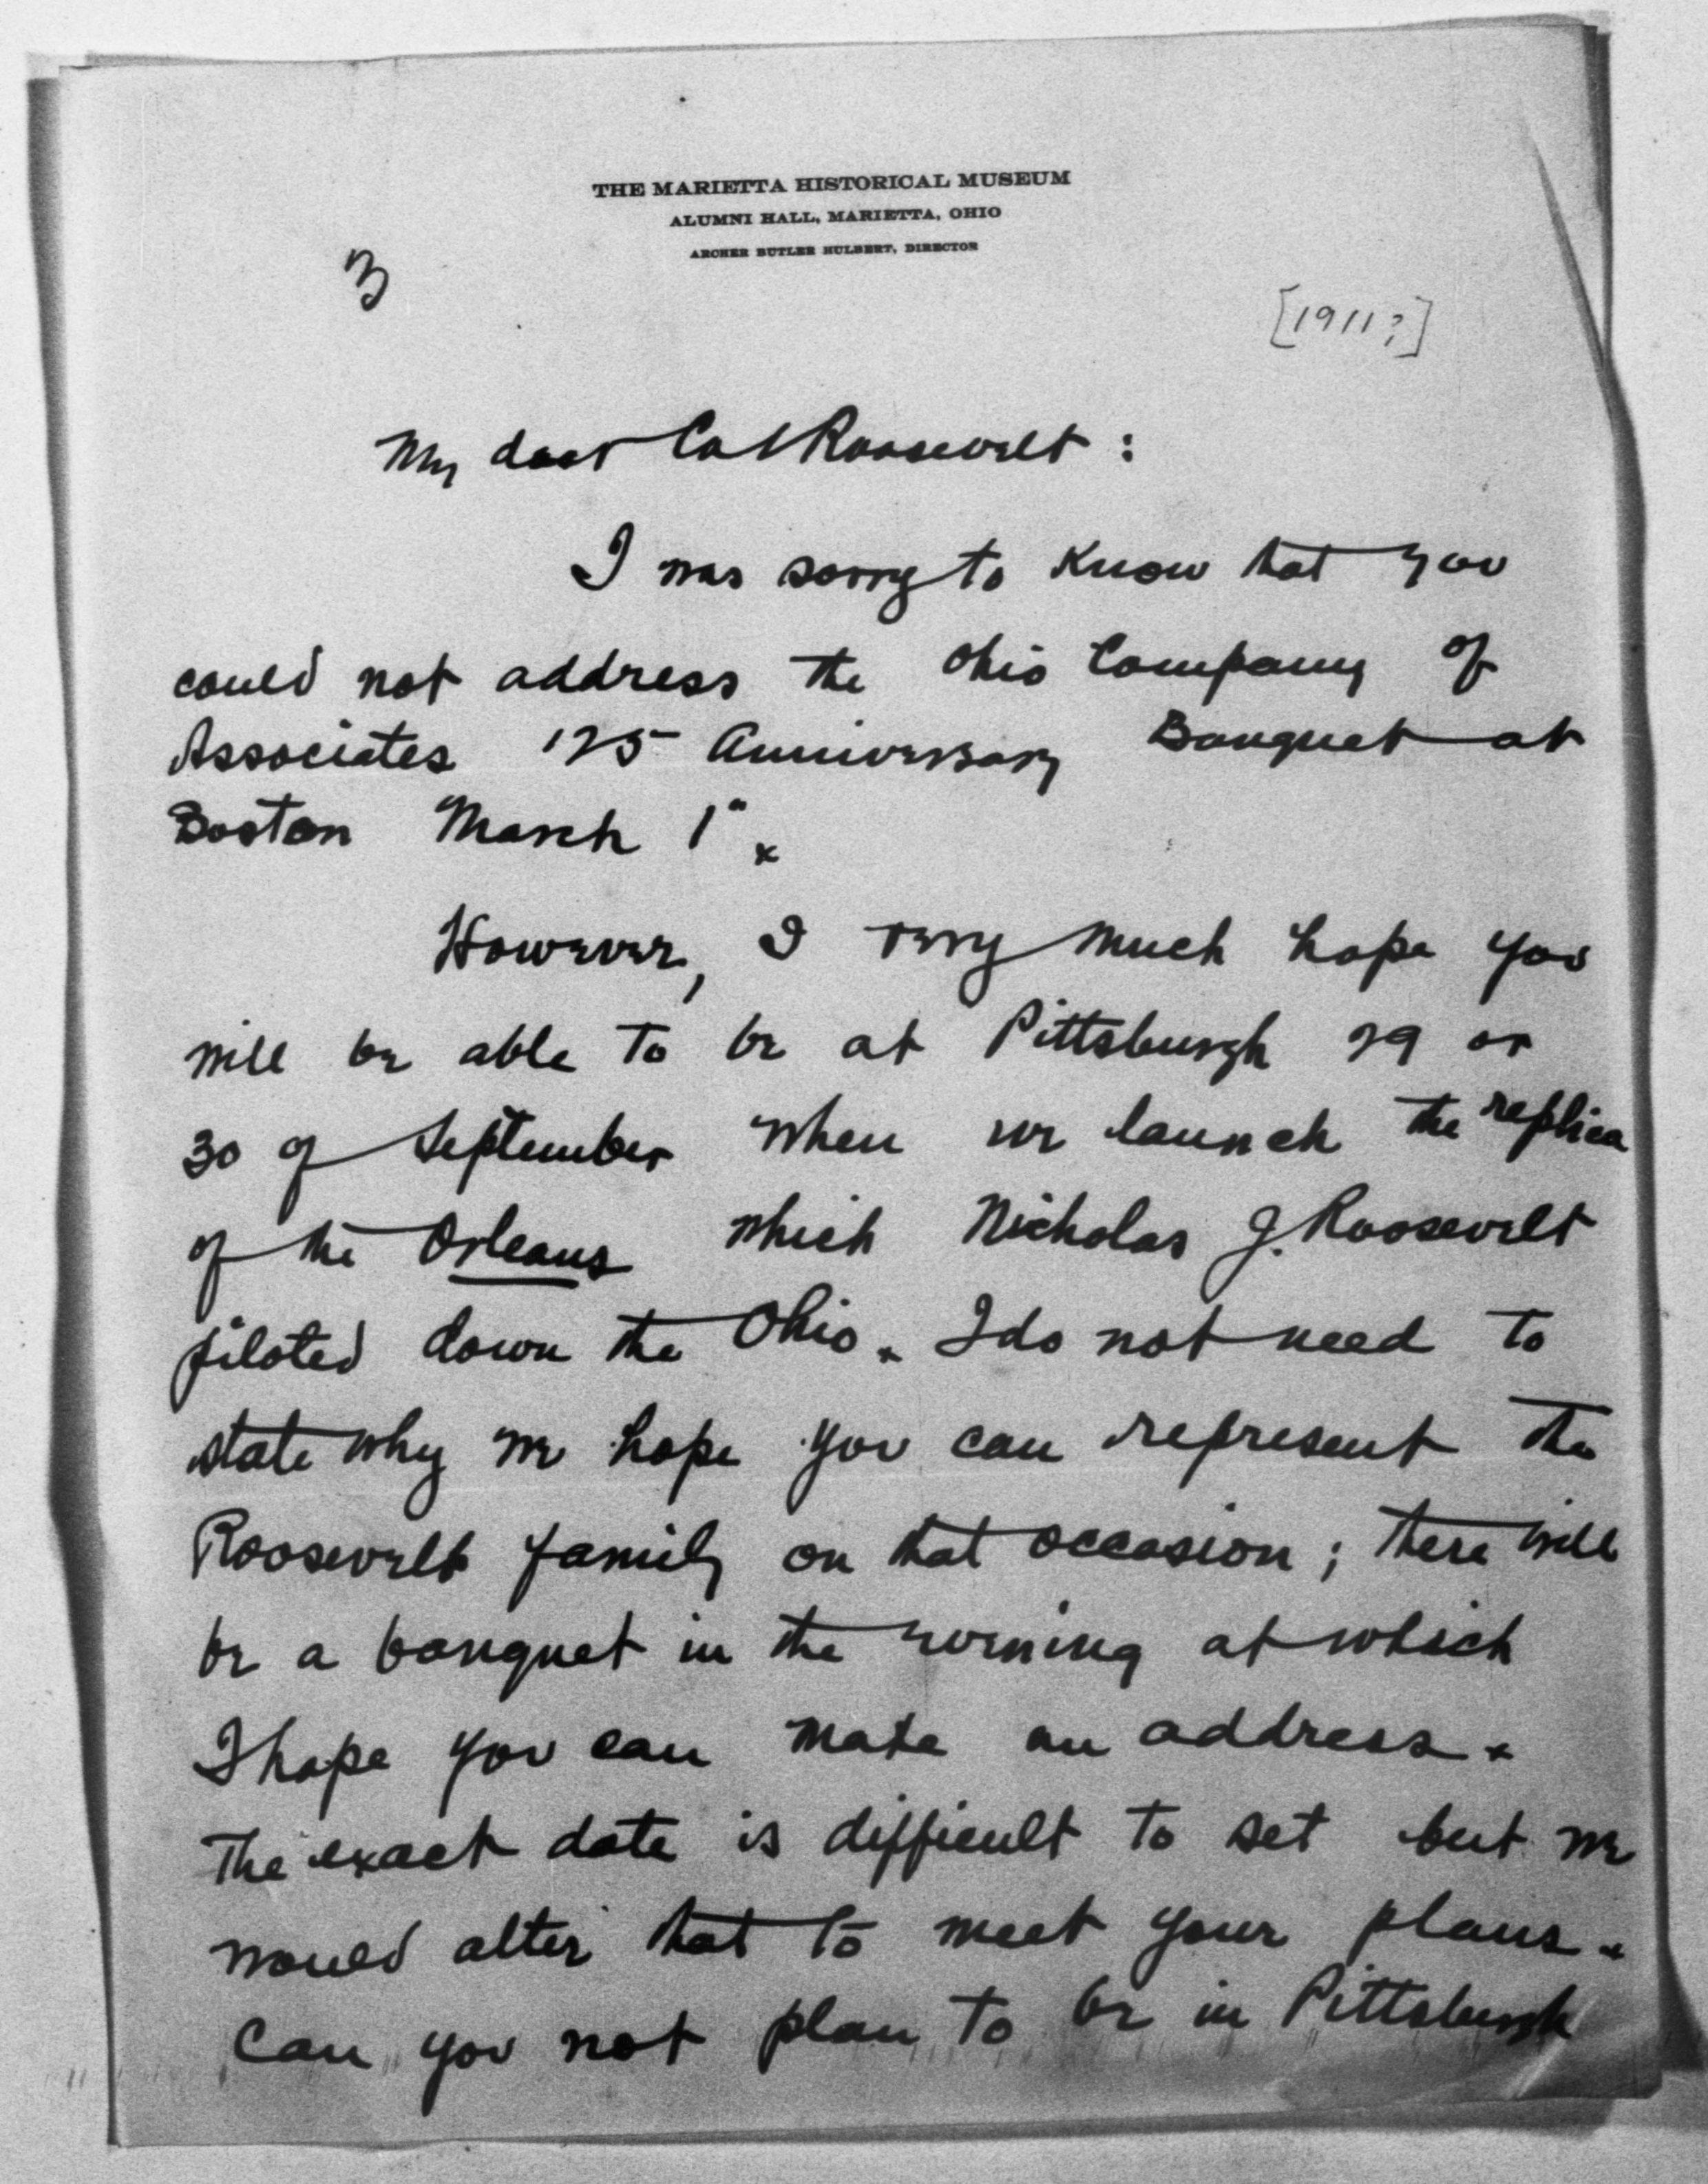 THE MARIETTA HISTORICAL MUSEUM
ALUMNI HALL, MARIETTA, OHIO
ARCHER BUTLER HULBERT, DIRECTOR
3
[1911?]
My dear Col Roosevelt:
I was sorry to know that you
could not address the Ohio Company of
Associates 125 Anniversary Banquet at
Boston March 1".
However, I very much hope you
will be able to be at Pittsburgh 29 or
30 of September when we launch the replica
of the Orleans which Nicholas J. Roosevelt
piloted down the Ohio. I do not need to
state why we hope you can represent the
Roosevelt family on that occasion; there will
be a banquet in the evening at which
I hope you can make an address.
The exact date is difficult to set but we
would alter that to meet your plans.
Can you not plan to be in Pittsburgh